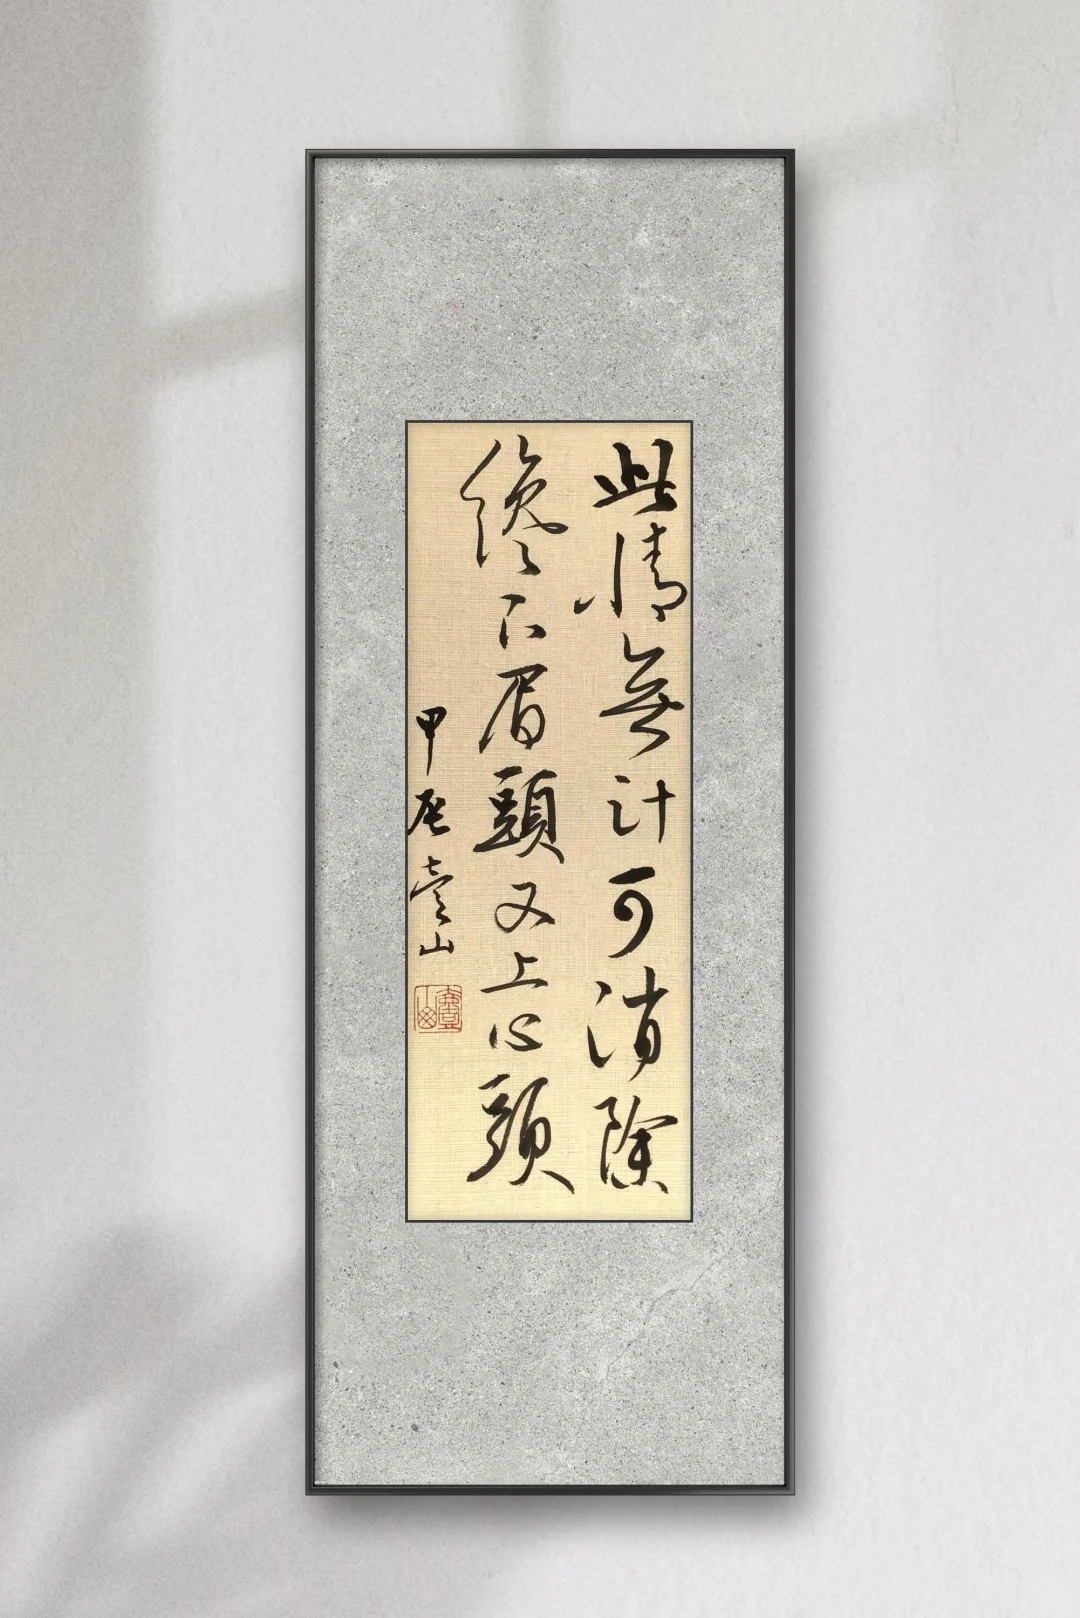 此情無計可消除
纔下眉頭又上心頭
甲辰山